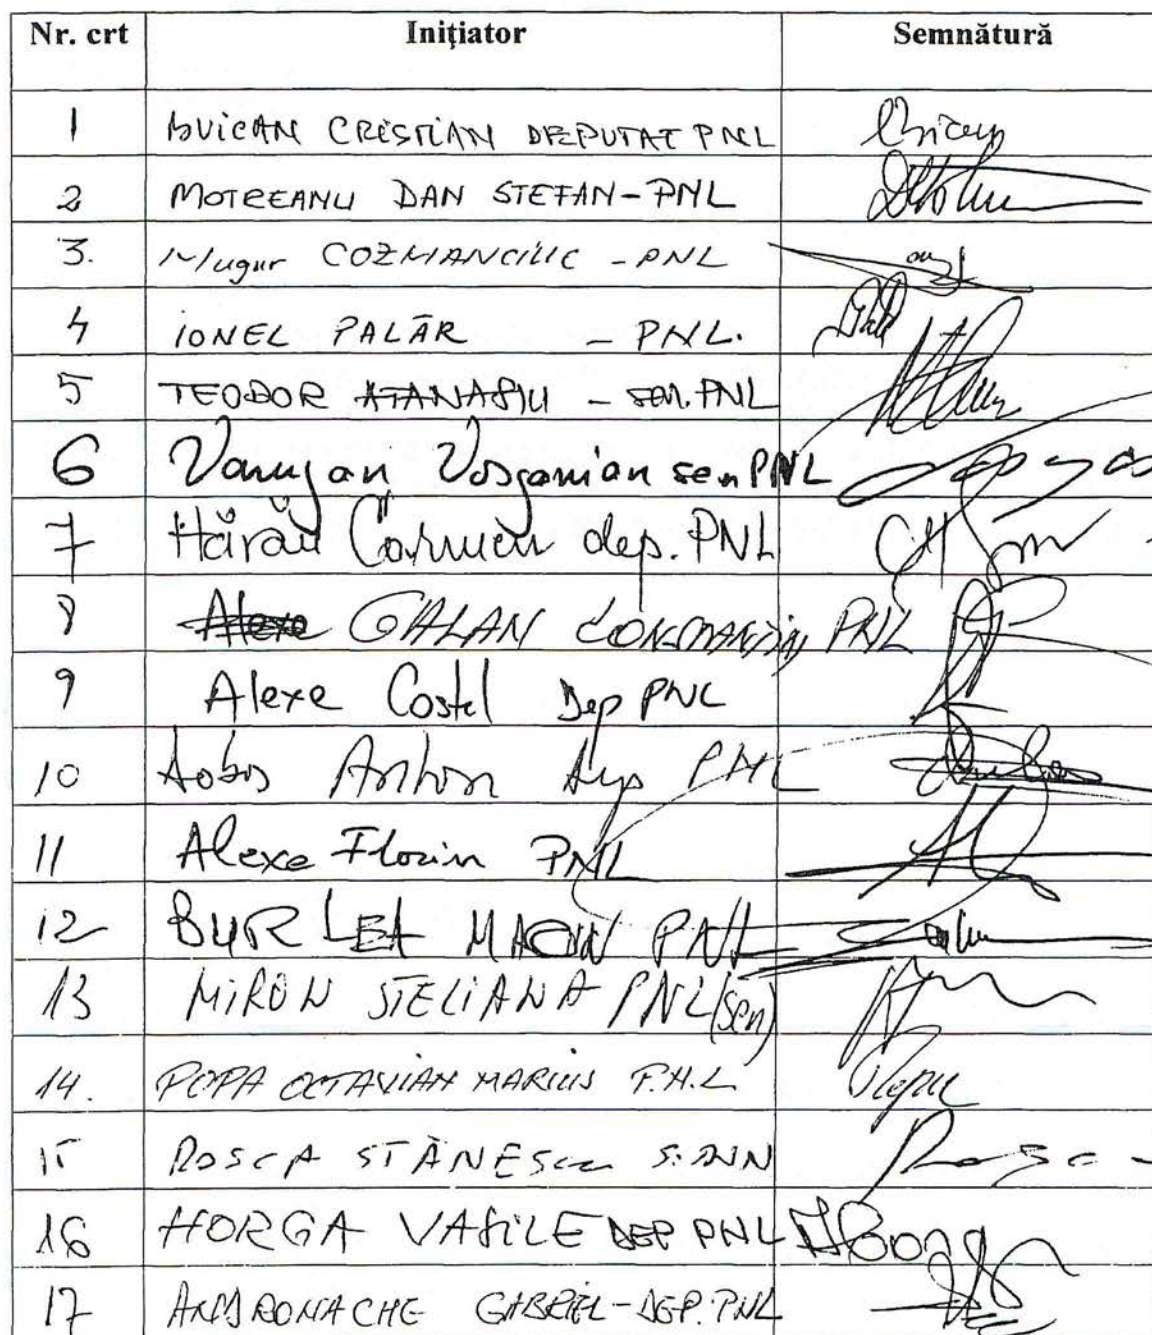 Nr. crt Inițiator Semnătură
1 BUICAN CRISTIAN DEPUTAT PNL
2 MOTREANU DAN STEFAN - PNL
3. Mugur COZMANCIUC - PNL
4 IONEL PALĂR - PNL.
5 TEODOR ATANASIU - SEN. PNL
6 Varujan Vosganian sen PNL
7 Hărău Carmen dep. PNL
8 Alexe GALAN CONSTANTIN PNL
9 Alexe Costel Dep PNL
10 Anton dep PNL
11 Alexe Florin PNL
12 BURLEA MARIN PNL
13 MIRON STELIANA PNL (sen)
14. POPA OCTAVIAN MARIUS P.N.L
15 ROSCA STĂNESCU
16 HORGA VASILE DEP PNL
17 ANDRONACHE GABRIEL - DEP. PNL